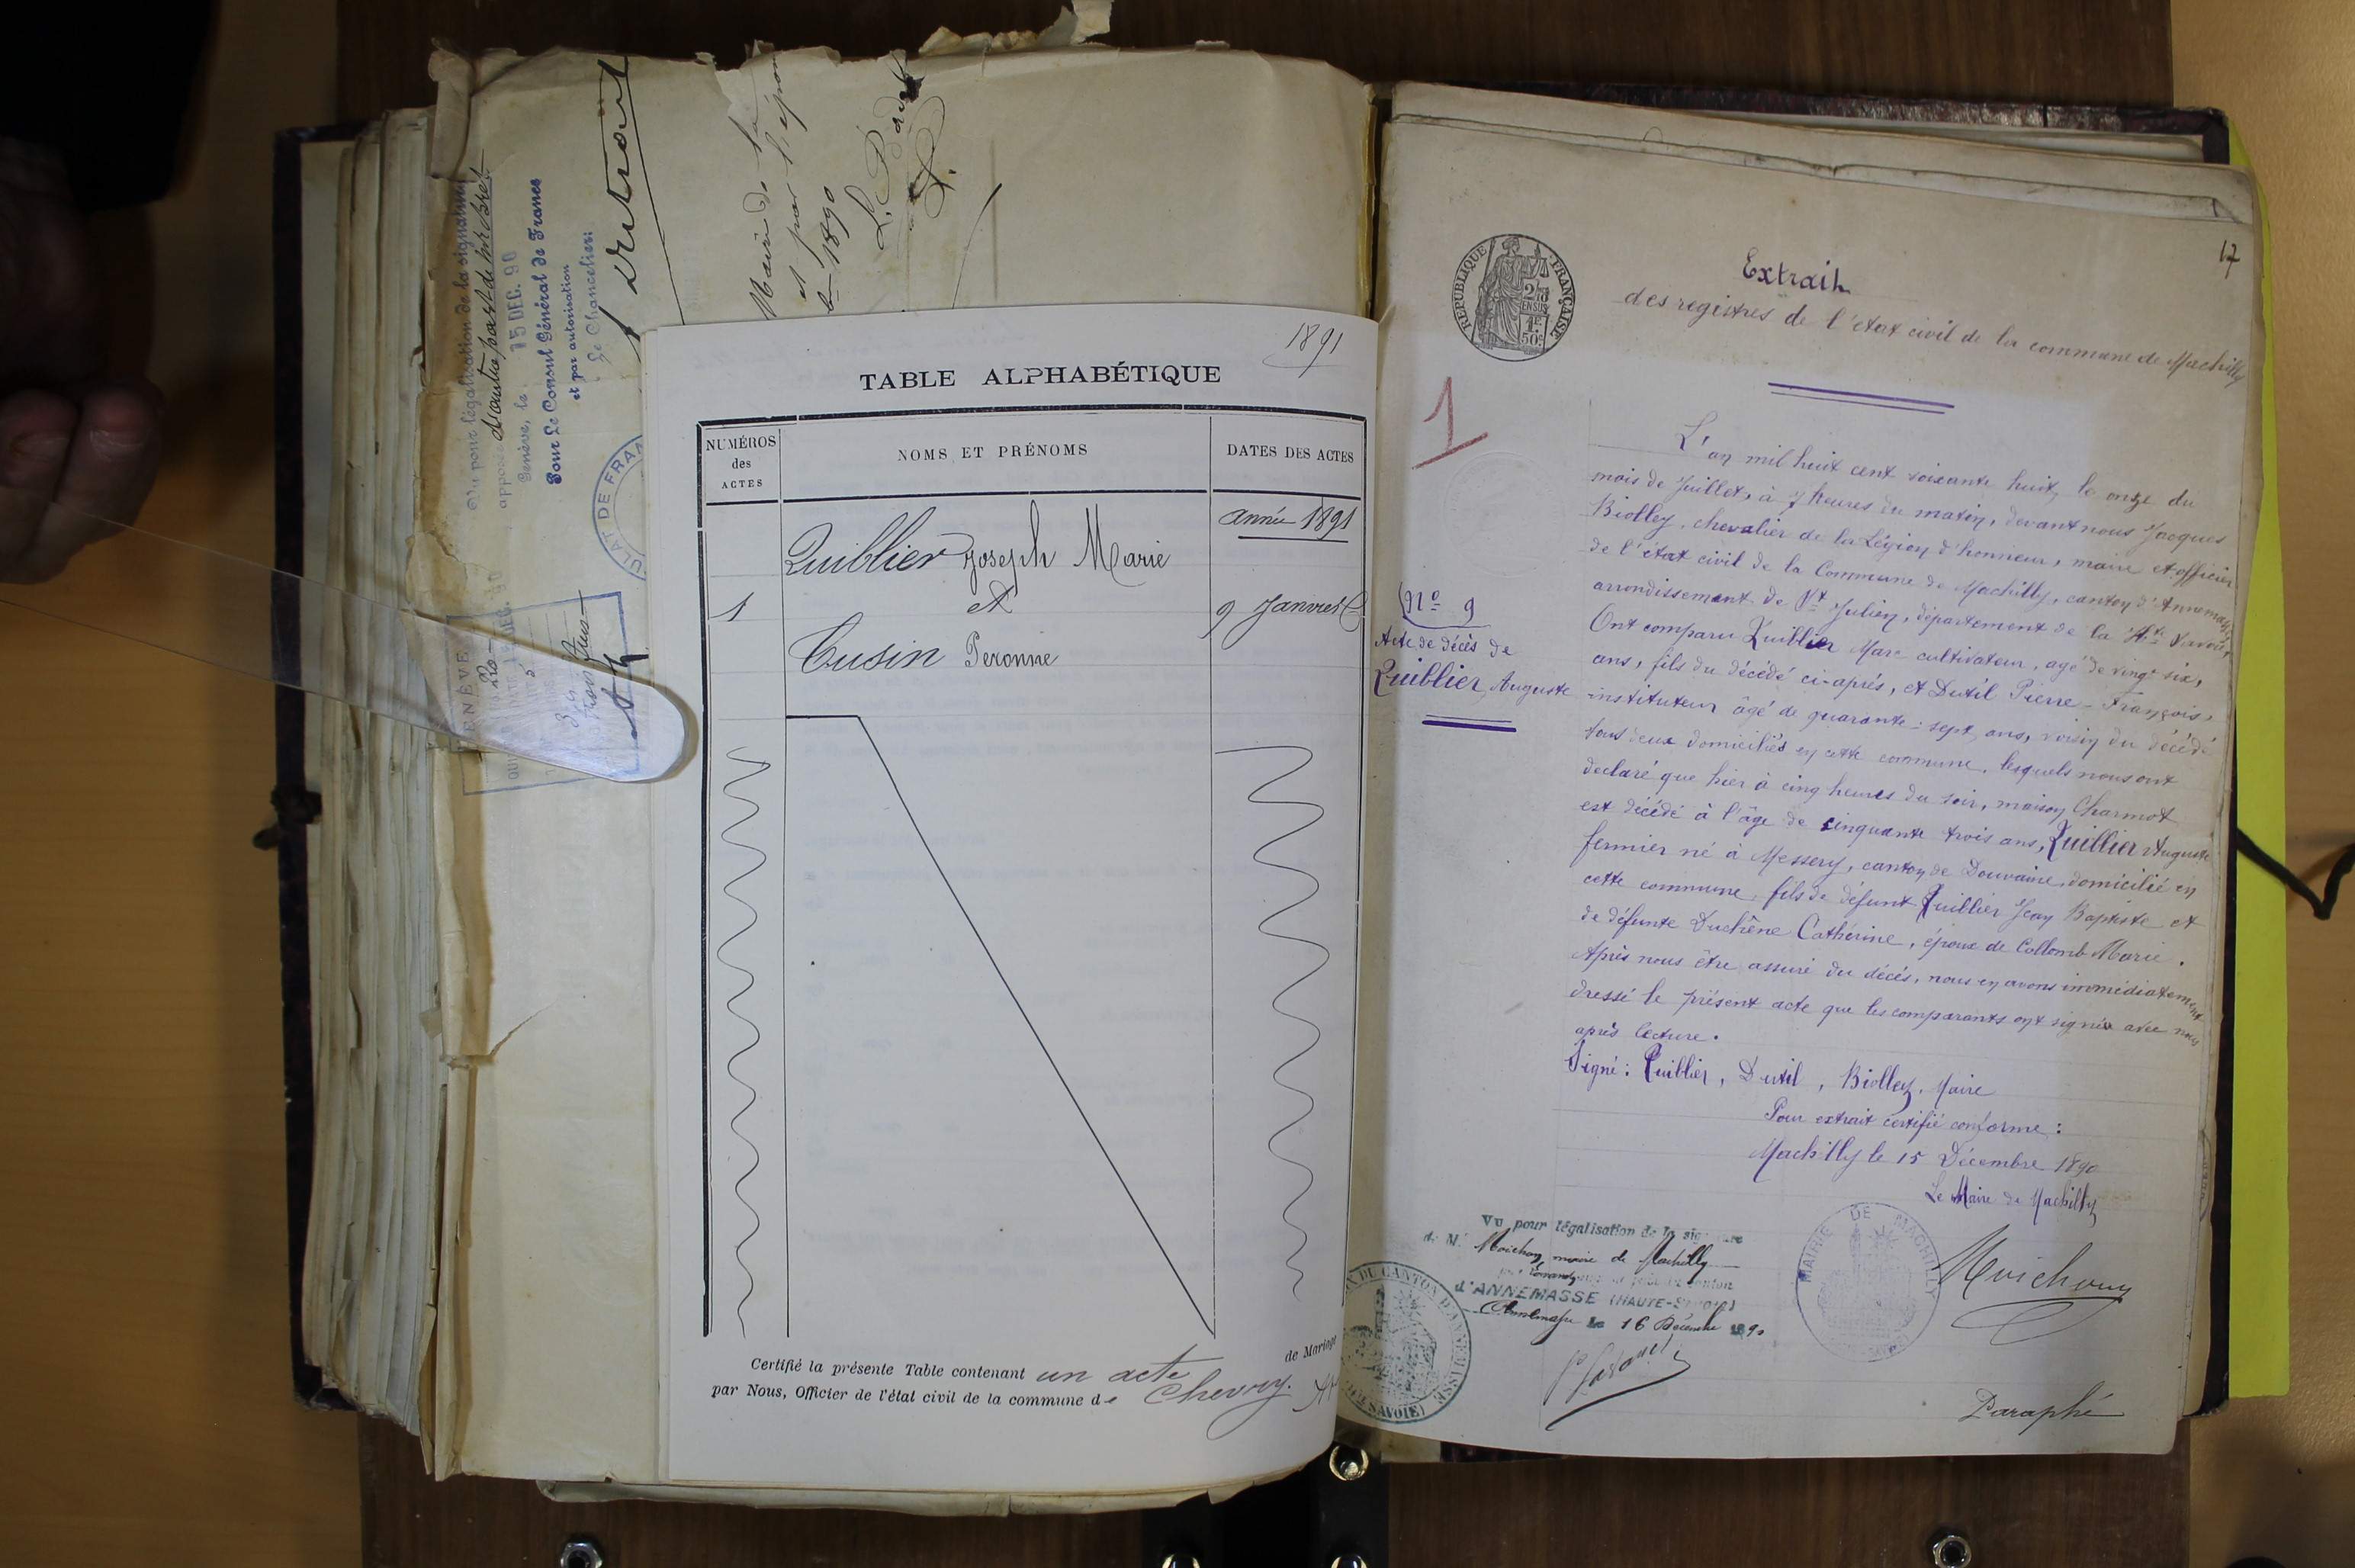 Vu pour légalisation de la signature
d'autre part
apposée
Genève, le 15 DEC. 90
Pour Le Consul Général de France
et par autorisation
Le Chancelier:
Mairie de la
et par l'époux
1890
ULAT DE FRAN
ENÈVE
1891
TABLE ALPHABÉTIQUE
NUMÉROS
des
ACTES
NOMS ET PRÉNOMS
DATES DES ACTES
année 1891
Quiblier Joseph Marie
1 et 9 Janvier
Cusin Peronne
Certifié la présente Table contenant un acte de Mariage
par Nous, Officier de l'état civil de la commune de Chevry.
17
REPUBLIQUE FRANÇAISE
2/10
EN SUS
1F
50C
Extrait
des registres de l'etat civil de la commune de Machilly
1
L'an mil huit cent soixante huit, le onze du
mois de Juillet, à 7 heures du matin, devant nous Jacques
Biolley, chevalier de la Légion d'honneur, maire et officier
de l'état civil de la Commune de Machilly, canton d'Annemasse,
arrondissement de St Julien, département de la Hte Savoie,
Nº 9
Acte de décès de
Quiblier, Auguste
Ont comparu Quiblier Marc cultivateur, agé de vingt six,
ans, fils du décédé ci-après, et Dutil Pierre-François,
instituteur âgé de quarante-sept ans, voisin du décédé
tous deux domiciliés en cette commune, lesquels nous ont
declaré que hier à cinq heures du soir, maison Charmot
est décédé à l'âge de cinquante trois ans, Quiblier Auguste
fermier né à Messery, canton de Douvaine, domicilié en
cette commune, fils de défunt Quiblier Jean Baptiste et
de défunte Duchêne Cathérine, époux de Collomb Marie.
Après nous être assuré du décès, nous en avons immédiatement
dressé le présent acte que les comparants ont signés avec nous
après lecture.
Signé: Quiblier, Dutil, Biolley, Maire
Pour extrait certifié conforme:
Machilly le 15 Décembre 1890
Le Maire de Machilly
MAIRIE DE MACHILLY
Vu pour légalisation de la signature
de M. Moichon, maire de Machilly
d'ANNEMASSE (HAUTE-SAVOIE)
Annemasse le 16 Décembre 1890
DU CANTON D'ANNEMASSE
SAVOIE)
Paraphé